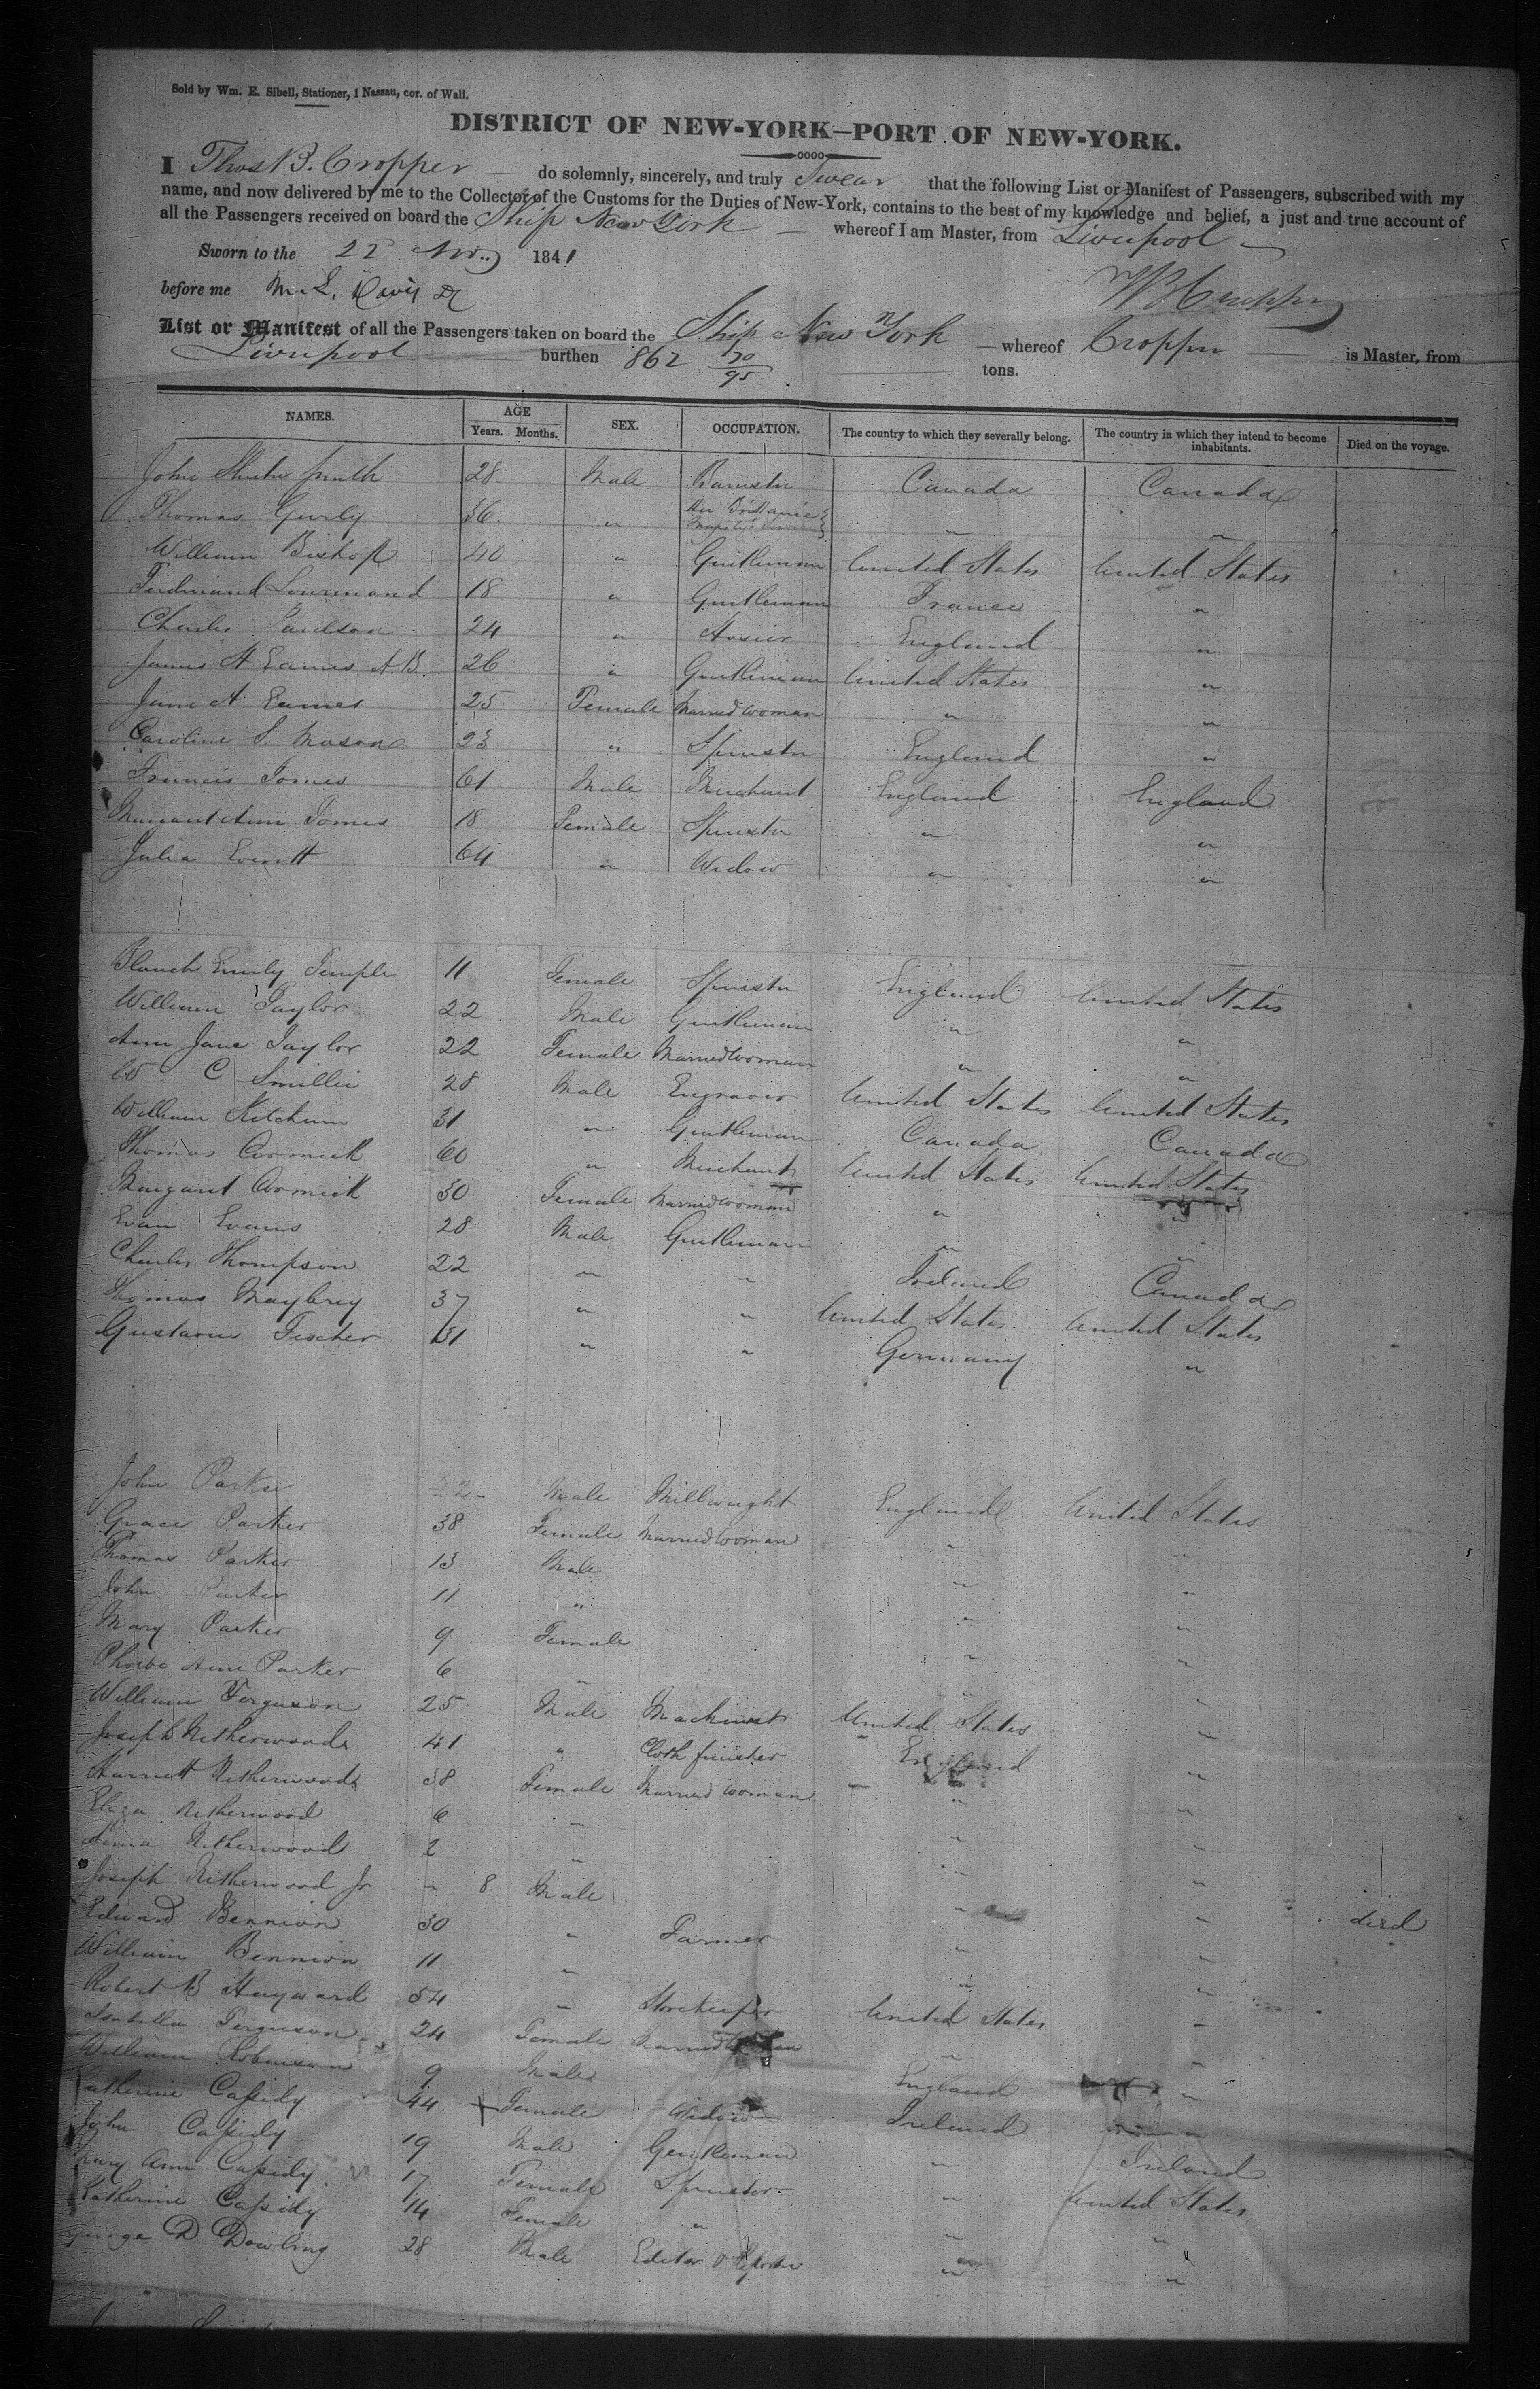 Sold by Wm. E. Sibell, Stationer, 1 Nassau, cor. of Wall.
DISTRICT OF NEW-YORK—PORT OF NEW-YORK.
I Thos B. Cropper do solemnly, sincerely, and truly Swear that the following List or Manifest of Passengers, subscribed with my
name, and now delivered by me to the Collector of the Customs for the Duties of New-York, contains to the best of my knowledge and belief, a just and true account of
all the Passengers received on board the Ship New York whereof I am Master, from Liverpool
Sworn to the 22 Nov. 1841
before me
List or Manifest of all the Passengers taken on board the Ship New York whereof Cropper is Master, from
Liverpool burthen 862 70/95 tons.
NAMES. AGE SEX. OCCUPATION. The country to which they severally belong. The country in which they intend to become inhabitants. Died on the voyage.
Years. Months.
John Smith 28 Male Barrister Canada Canada
Thomas 36 " Her Brittanic Majesty's " "
William Bishop 40 " Gentleman United States United States
Ferdinand Lourmand 18 " Gentleman France "
Charles 24 " Hosier England "
James H Eames A.B. 26 " Gentleman United States "
Jane A Eames 25 Female Married woman " "
Caroline S. Mason 23 " Spinster England "
Francis Tomes 61 Male Merchant England England
Margaret Ann Tomes 18 Female Spinster " "
Julia Everett 64 " Widow " "
Blanch Emily Temple 11 Female Spinster England United States
William Taylor 22 Male Gentleman " "
Ann Jane Taylor 22 Female Married Woman " "
W C Smillie 28 Male Engraver United States United States
William Ketchum 31 " Gentleman Canada Canada
Thomas Cormick 60 " Merchant United States United States
Margaret Cormick 30 Female Married woman " "
Evan Evans 28 Male Gentleman " "
Charles Thompson 22 " " Ireland Canada
Thomas Maybrey 37 " " United States United States
Gustavus Fischer 31 " " Germany "
John Parker Male Millwright England United States
Grace Parker 38 Female Married Woman " "
Thomas Parker 13 Male " "
John Parker 11 " " "
Mary Parker 9 Female " "
Phoebe Ann Parker 6 " " "
William Ferguson 25 Male Machinist United States "
Joseph Netherwood 41 " Cloth finisher England "
Harriett Netherwood 38 Female Married woman " "
Eliza Netherwood 6 " " "
Netherwood 2 " " "
Joseph Netherwood Jr " 8 Male " " died
Edward Bennion 30 " Farmer " "
William Bennion 11 " " "
Robert B Hayward 54 " Storekeeper United States "
Isabella Ferguson 24 Female Married Woman " "
William Robinson 9 Male England "
Catherine Cassidy 44 Female Widow Ireland "
John Cassidy 19 Male Gentleman " Ireland
Mary Ann Cassidy 17 Female Spinster " United States
Katherine Cassidy 14 Female " " "
George D Dowling 28 Male Editor & Reporter " "